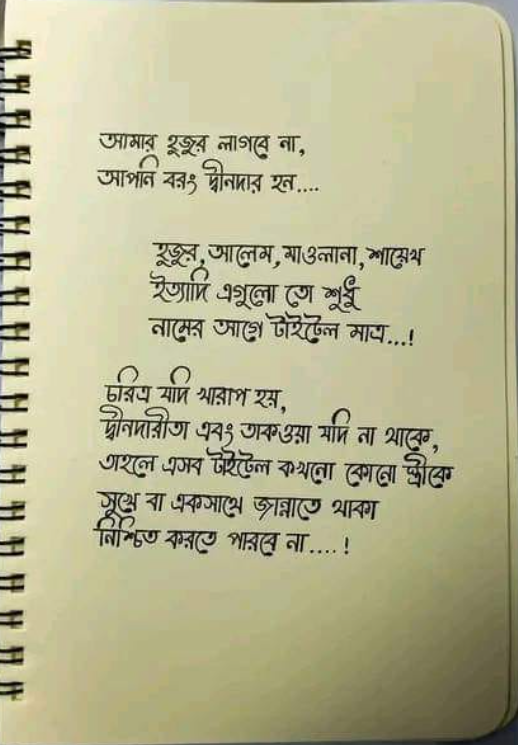 আমার হুজুর লাগবে না,
আপনি বরং দ্বীনদার হন....
হুজুর, আলেম, মাওলানা, শায়েখ
ইত্যাদি এগুলো তো শুধু
নামের আগে টাইটেল মাত্র...!
চরিত্র যদি খারাপ হয়,
দ্বীনদারীতা এবং তাকওয়া যদি না থাকে,
তাহলে এসব টাইটেল কখনো কোনো স্ত্রীকে
সুখে বা একসাথে জান্নাতে থাকা
নিশ্চিত করতে পারবে না....!